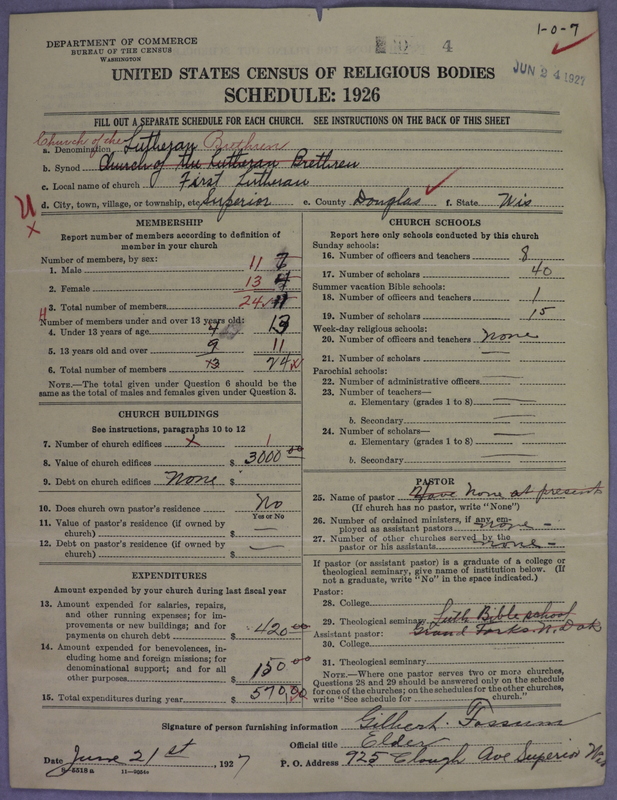 1-0-7
DEPARTMENT OF COMMERCE
BUREAU OF THE CENSUS
WASHINGTON
4
JUN 24 1927
UNITED STATES CENSUS OF RELIGIOUS BODIES
SCHEDULE: 1926
FILL OUT A SEPARATE SCHEDULE FOR EACH CHURCH. SEE INSTRUCTIONS ON THE BACK OF THIS SHEET
Church of the Lutheran Brethren
a. Denomination
b. Synod Church of the Lutheran Brethren
c. Local name of church First Lutheran
d. City, town, village, or township, etc. Superior e. County Douglas f. State Wis
MEMBERSHIP
Report number of members according to definition of
member in your church
Number of members, by sex:
1. Male 11 7
2. Female 13 4
3. Total number of members 24 11
Number of members under and over 13 years old:
4. Under 13 years of age 4 13
5. 13 years old and over 9 11
6. Total number of members 13 24
NOTE.—The total given under Question 6 should be
the same as the total of males and females given under Question 3.
CHURCH BUILDINGS
See instructions, paragraphs 10 to 12
7. Number of church edifices x 1
8. Value of church edifices $ 3000 00
9. Debt on church edifices None $
10. Does church own pastor's residence No
Yes or No
11. Value of pastor's residence (if owned by
church) $ —
12. Debt on pastor's residence (if owned by
church) $ —
EXPENDITURES
Amount expended by your church during last fiscal year
13. Amount expended for salaries, repairs,
and other running expenses; for im-
provements or new buildings; and for
payments on church debt $ 420 00
14. Amount expended for benevolences, in-
cluding home and foreign missions; for
denominational support; and for all
other purposes $ 150 00
15. Total expenditures during year $ 570.00
CHURCH SCHOOLS
Report here only schools conducted by this church
Sunday schools:
16. Number of officers and teachers 8
17. Number of scholars 40
Summer vacation Bible schools:
18. Number of officers and teachers 1
19. Number of scholars 15
Week-day religious schools:
20. Number of officers and teachers none
21. Number of scholars —
Parochial schools:
22. Number of administrative officers —
23. Number of teachers—
a. Elementary (grades 1 to 8) —
b. Secondary —
24. Number of scholars—
a. Elementary (grades 1 to 8) —
b. Secondary —
PASTOR
25. Name of pastor Have None at present
(If church has no pastor, write "None")
26. Number of ordained ministers, if any, em-
ployed as assistant pastors none —
27. Number of other churches served by the
pastor or his assistants none —
If pastor (or assistant pastor) is a graduate of a college or
theological seminary, give name of institution below. (If
not a graduate, write "No" in the space indicated.)
Pastor:
28. College
29. Theological seminary Luth Bible school
Assistant pastor: Grand Forks N. Dak
30. College
31. Theological seminary
NOTE.—Where one pastor serves two or more churches,
Questions 28 and 29 should be answered only on the schedule
for one of the churches; on the schedules for the other churches,
write "See schedule for church."
Signature of person furnishing information Gilbert Fossum
Official title Elder
Date June 21st, 1927 P. O. Address 925 Clough Ave Superior Wis
8-5518 a